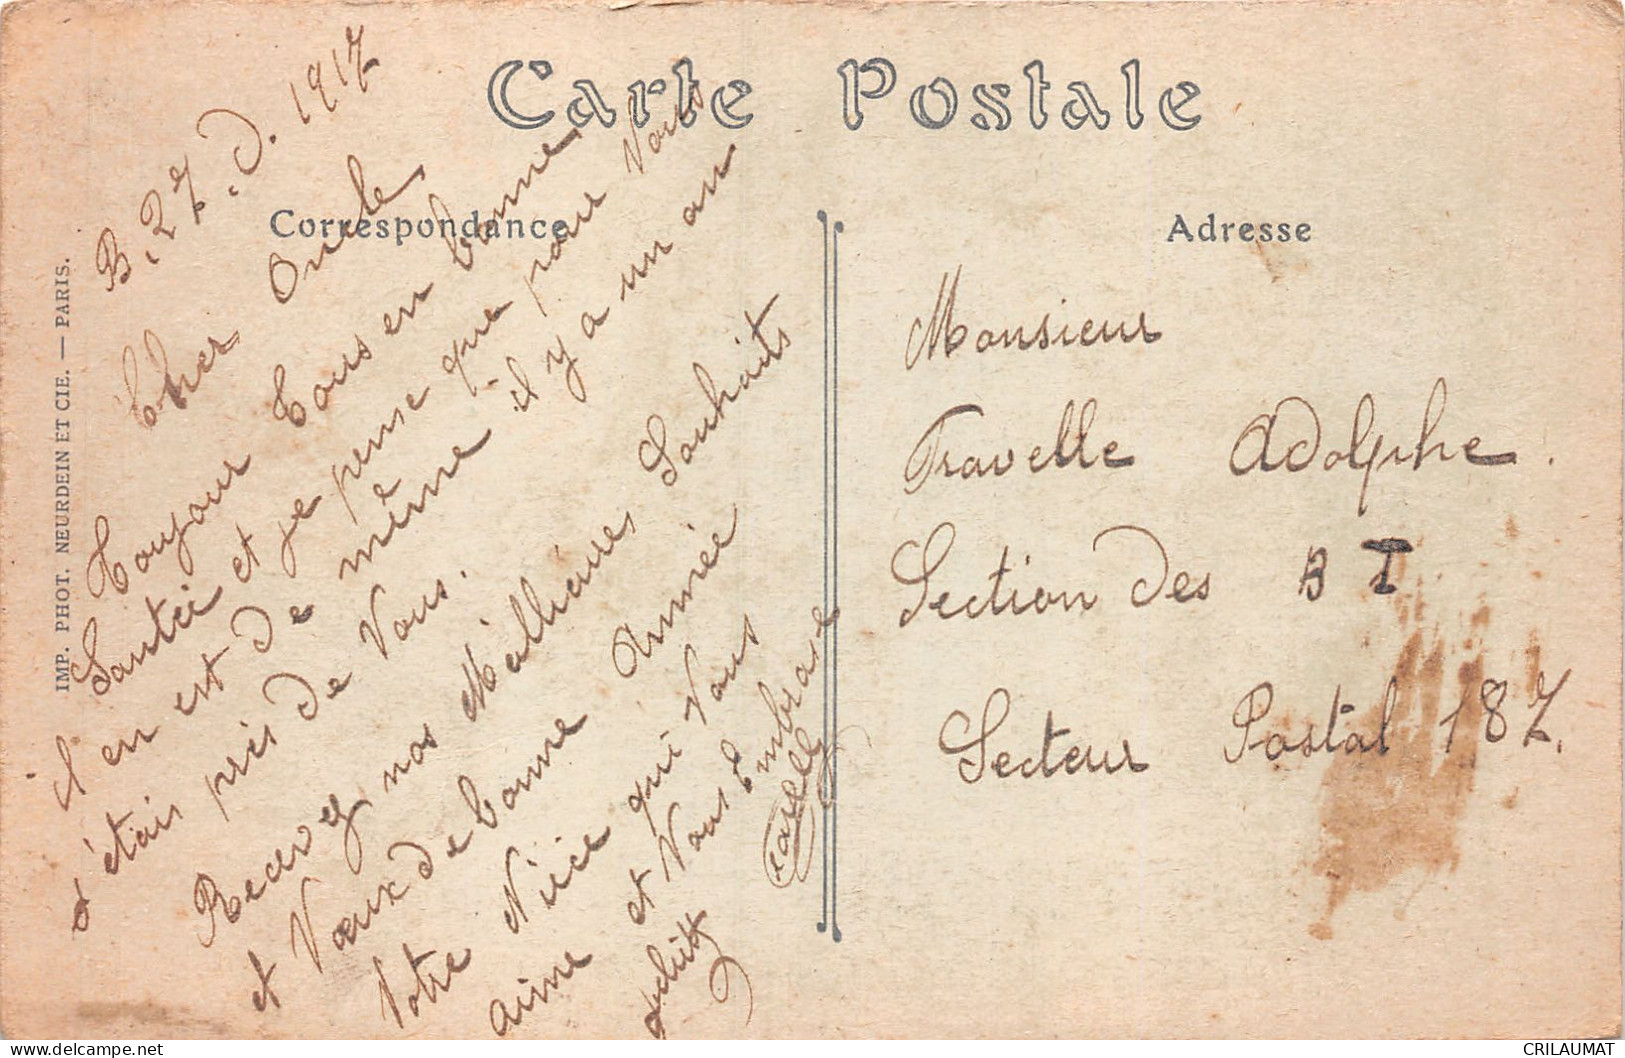 Carte Postale
Correspondance
Adresse
IMP. PHOT. NEURDEIN ET CIE. — PARIS.
B. 27. D. 1917
Cher Oncle,
Toujour Tous en bonne
Santée et je pense que pour Vous
il en est de même il y a un an
d'étais pris de Vous.
Recevez nos Meillieures Souhaits
et Voeux de bonne Année
Votre Nièce qui Vous
aime et Vous Embrasse
Monsieur
Travelle Adolphe.
Section des B T
Secteur Postal 187.
CRILAUMAT